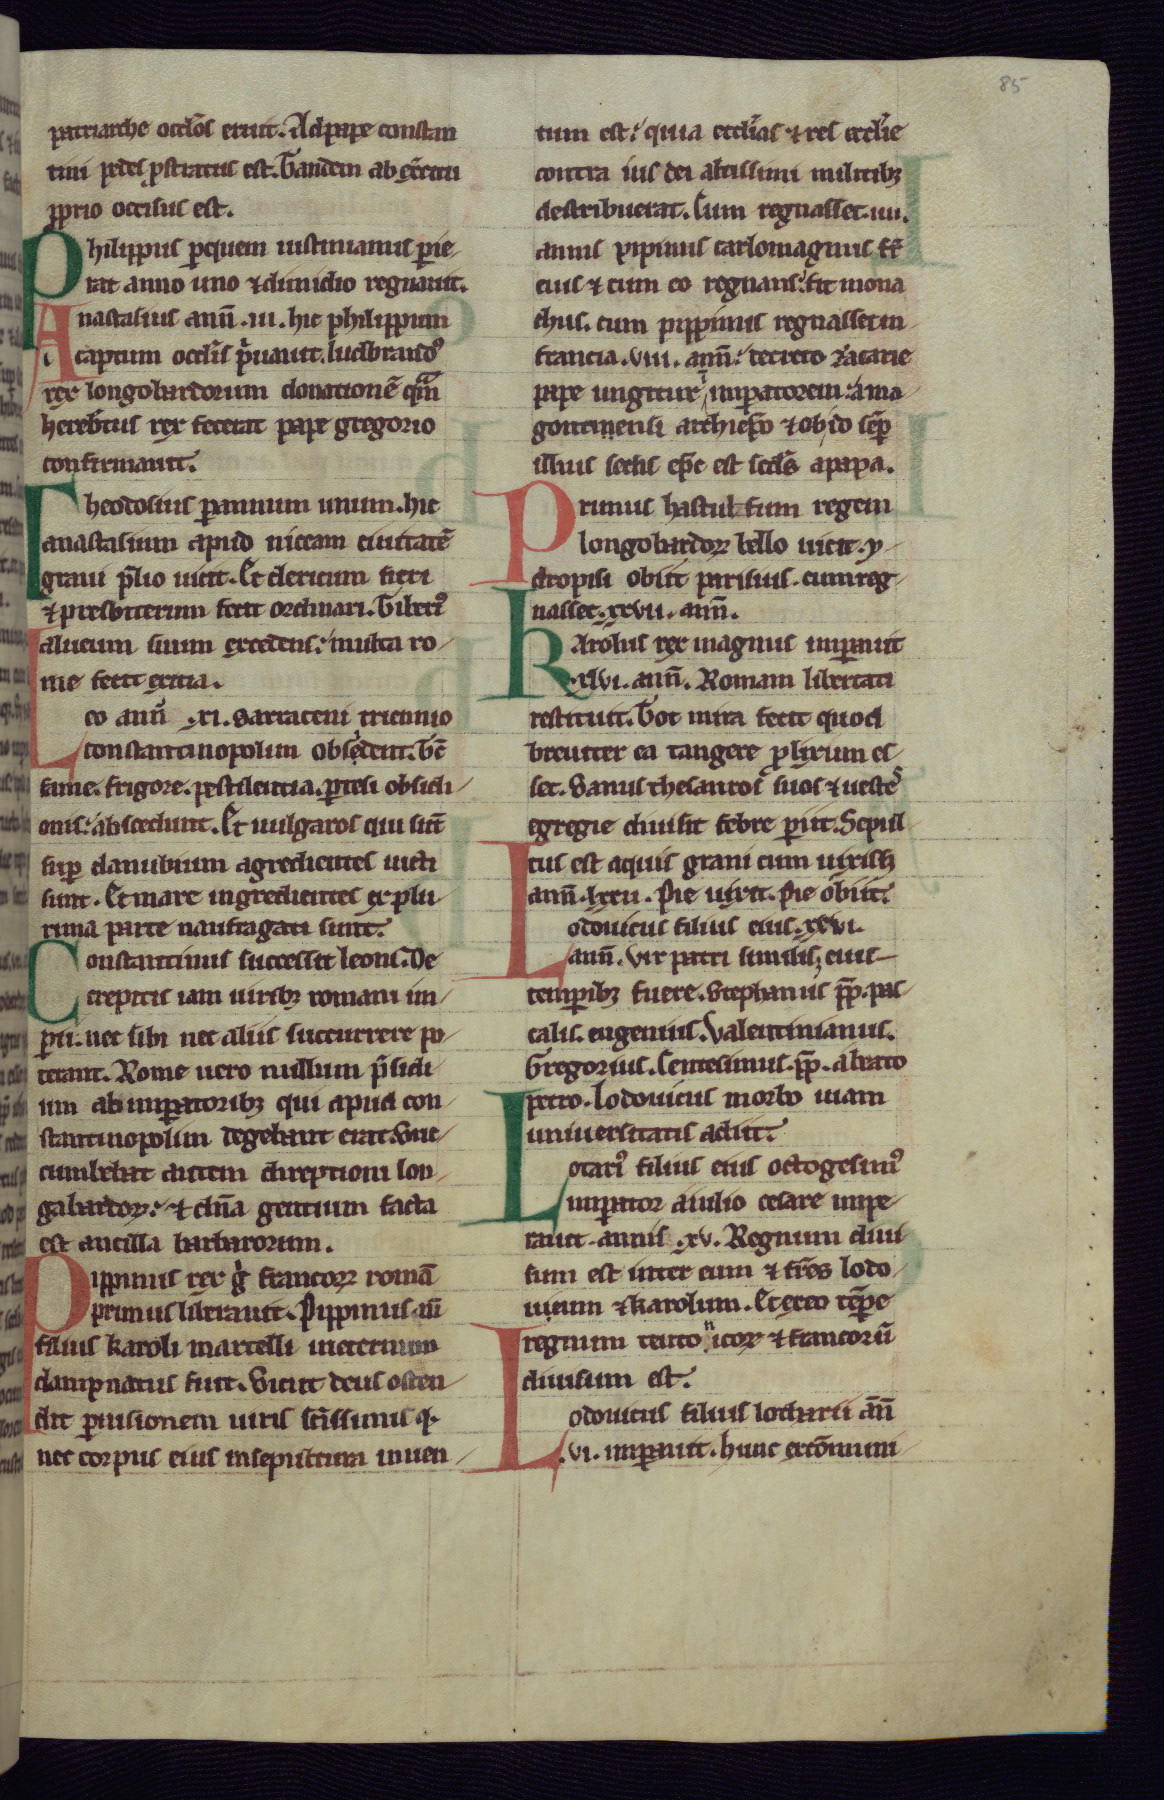 85
patriarche occl̄os eruit. Ad pape constan
tini pedes ꝓstratus est. Tandem ab exercitu
ꝓprio occisus est.
Philippus ꝑ quem iustinianus perie
rat anno uno ⁊ dimidio regnauit.
Anastasius ann̄ .iii. hic philippum
captum occl̄is pͥuauit. luitbrandꝰ
rex longobardorum donationē quam
herebtus rex fecerat pape gregorio
confirmauit.
Theodosius ꝑ annum unum. hic
anastasium apud niceam ciuitatē
graui p̄lio uicit. Et clericum fieri
⁊ presbiterum fecit ordinari. Tiberꝰ
alueum suum excedens: multa ro
me fecit exitia.
Leo ann̄ .xi. sarraceni triennio
constantinopolim obsedent. hē
fame. frigore. pestilentia. pertesi obsidi
onis: abscedunt. Et uulgaros qui sūt
suꝑ danubium agredientes uicti
sunt. Et mare ingredientes ex plu
rima parte naufragati sunt.
Constantinus successit leoni. De
crepitis iam uiribꝫ romani im
perii. nec sibi nec aliis succurrere po
terant. Rome uero nullum p̄sidi
um ab imꝑatoribꝫ qui apud con
stantinopolim degebant erat. Suc
cumbebat autem direptioni lon
gabardoꝝ: ⁊ dn̄a gentium facta
est ancilla barbarorum.
Pippinus rex francoꝝ romā
primus liberauit. Pippinus
filius karoli martelli in eternum
dampnatus fuit. Sicut deus osten
dit ꝑ uisionem uiris sctissimis qͥ
nec corpus eius in sepultum inuen
tum est: quia ecclias ⁊ res ecclie
contra ius dei altissimi militibꝫ
destribuerat. Cum regnasset .iiii.
annis pipinus carlomagnus fr̄
eius ⁊ cum eo regnans: fit mona
chus. cum pippinus regnasset in
francia .viii. ann̄: decreto zacarie
pape ungitur in imꝑatorem: a ma
gontinensi archiep̄o ⁊ ob id semꝑ
illius sedis ep̄c est scd̄s a papa.
Primus hastulfum regem
longobardoꝝ bello uicit. y
dropisi obiit parisius. cum reg
nasset .xxvii. ann̄.
Karolus rex magnus imꝑauit
.xlvi. ann̄. Romam libertati
restituit. Tot mira fecit quod
breuiter ea tangere ꝓlixum es
set. Sanus thesauros suos ⁊ uestes
egregie diuisit febre periit. Sepul
tus est aquis grani cum uixissꝫ
ann̄ .lxxii. Pie uixit. Pie obiit.
Lodouicus filius eius .xxvi.
ann̄. Vir patri similis; eius
temꝑibꝫ fuere. Stephanus pp̄. pas
calis. eugenius. Valentinianus.
Gregorius. Centesimus. pp̄. a beato
petro. Lodouicus morbo uiam
uniuersitatis adiit.
Lotarꝰ filius eius octogesimꝰ
imꝑator a iulio cesare impe
rauit annis .xv. Regnum diui
sum est inter eum ⁊ fr̄es lodo
uicum ⁊ karolum. Et ex eo tēpe
regnum teutonicoꝝ ⁊ francorū
diuisum est.
Lodouicus filius lotharii ān̄
.vi. imꝑauit. hunc excōmuni